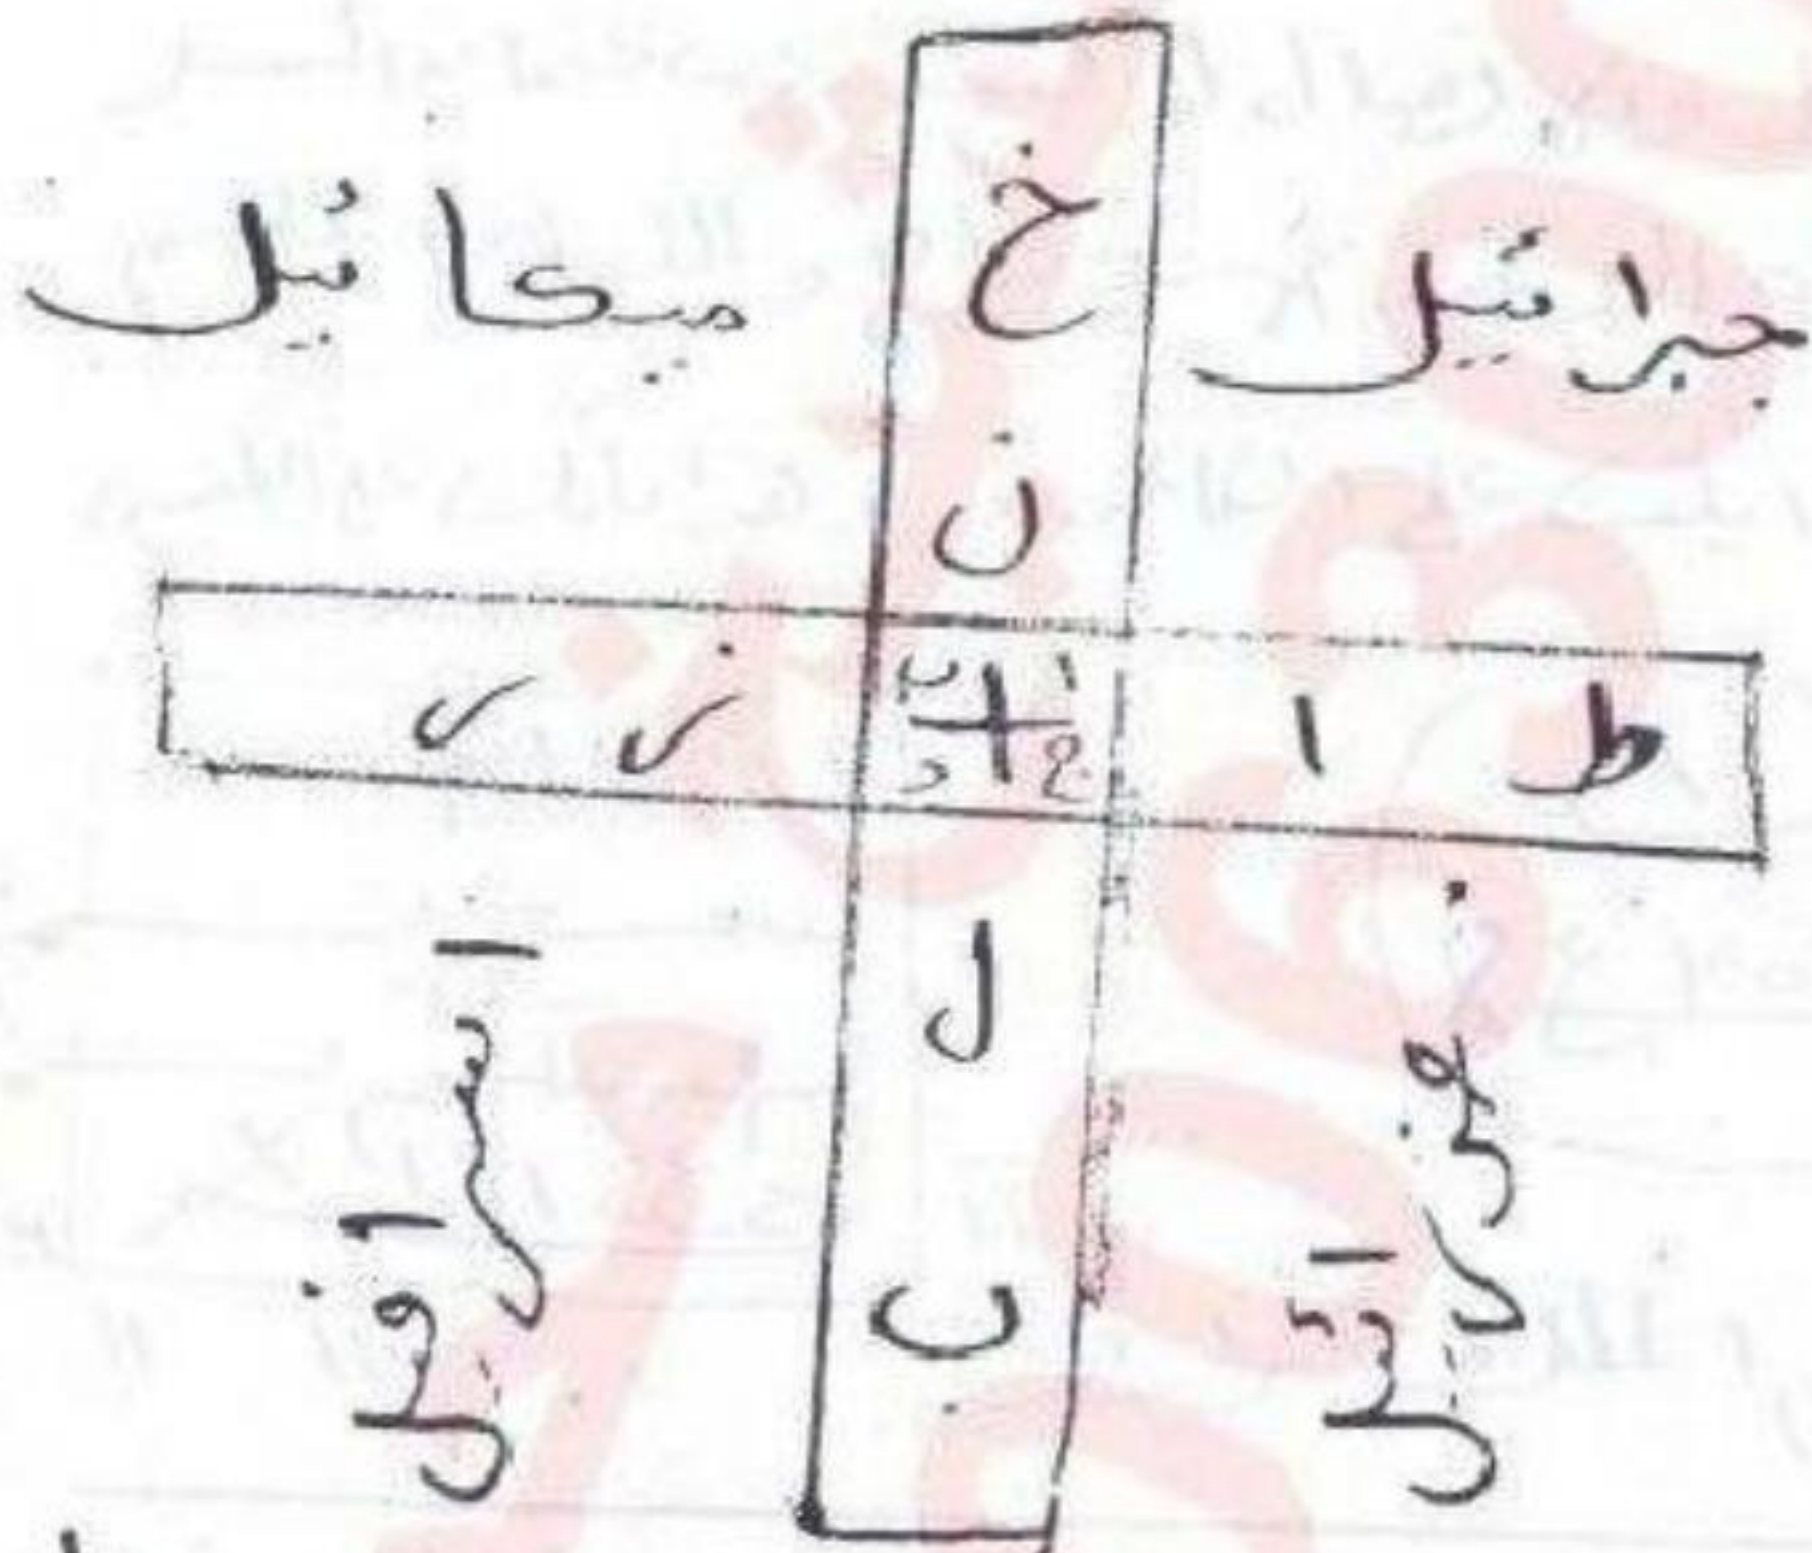 جبرائيل
ميكائيل
خ
ن
ط ا
ا ب
ج د
ز ر
ل
ب
عزرائيل
اسرافيل